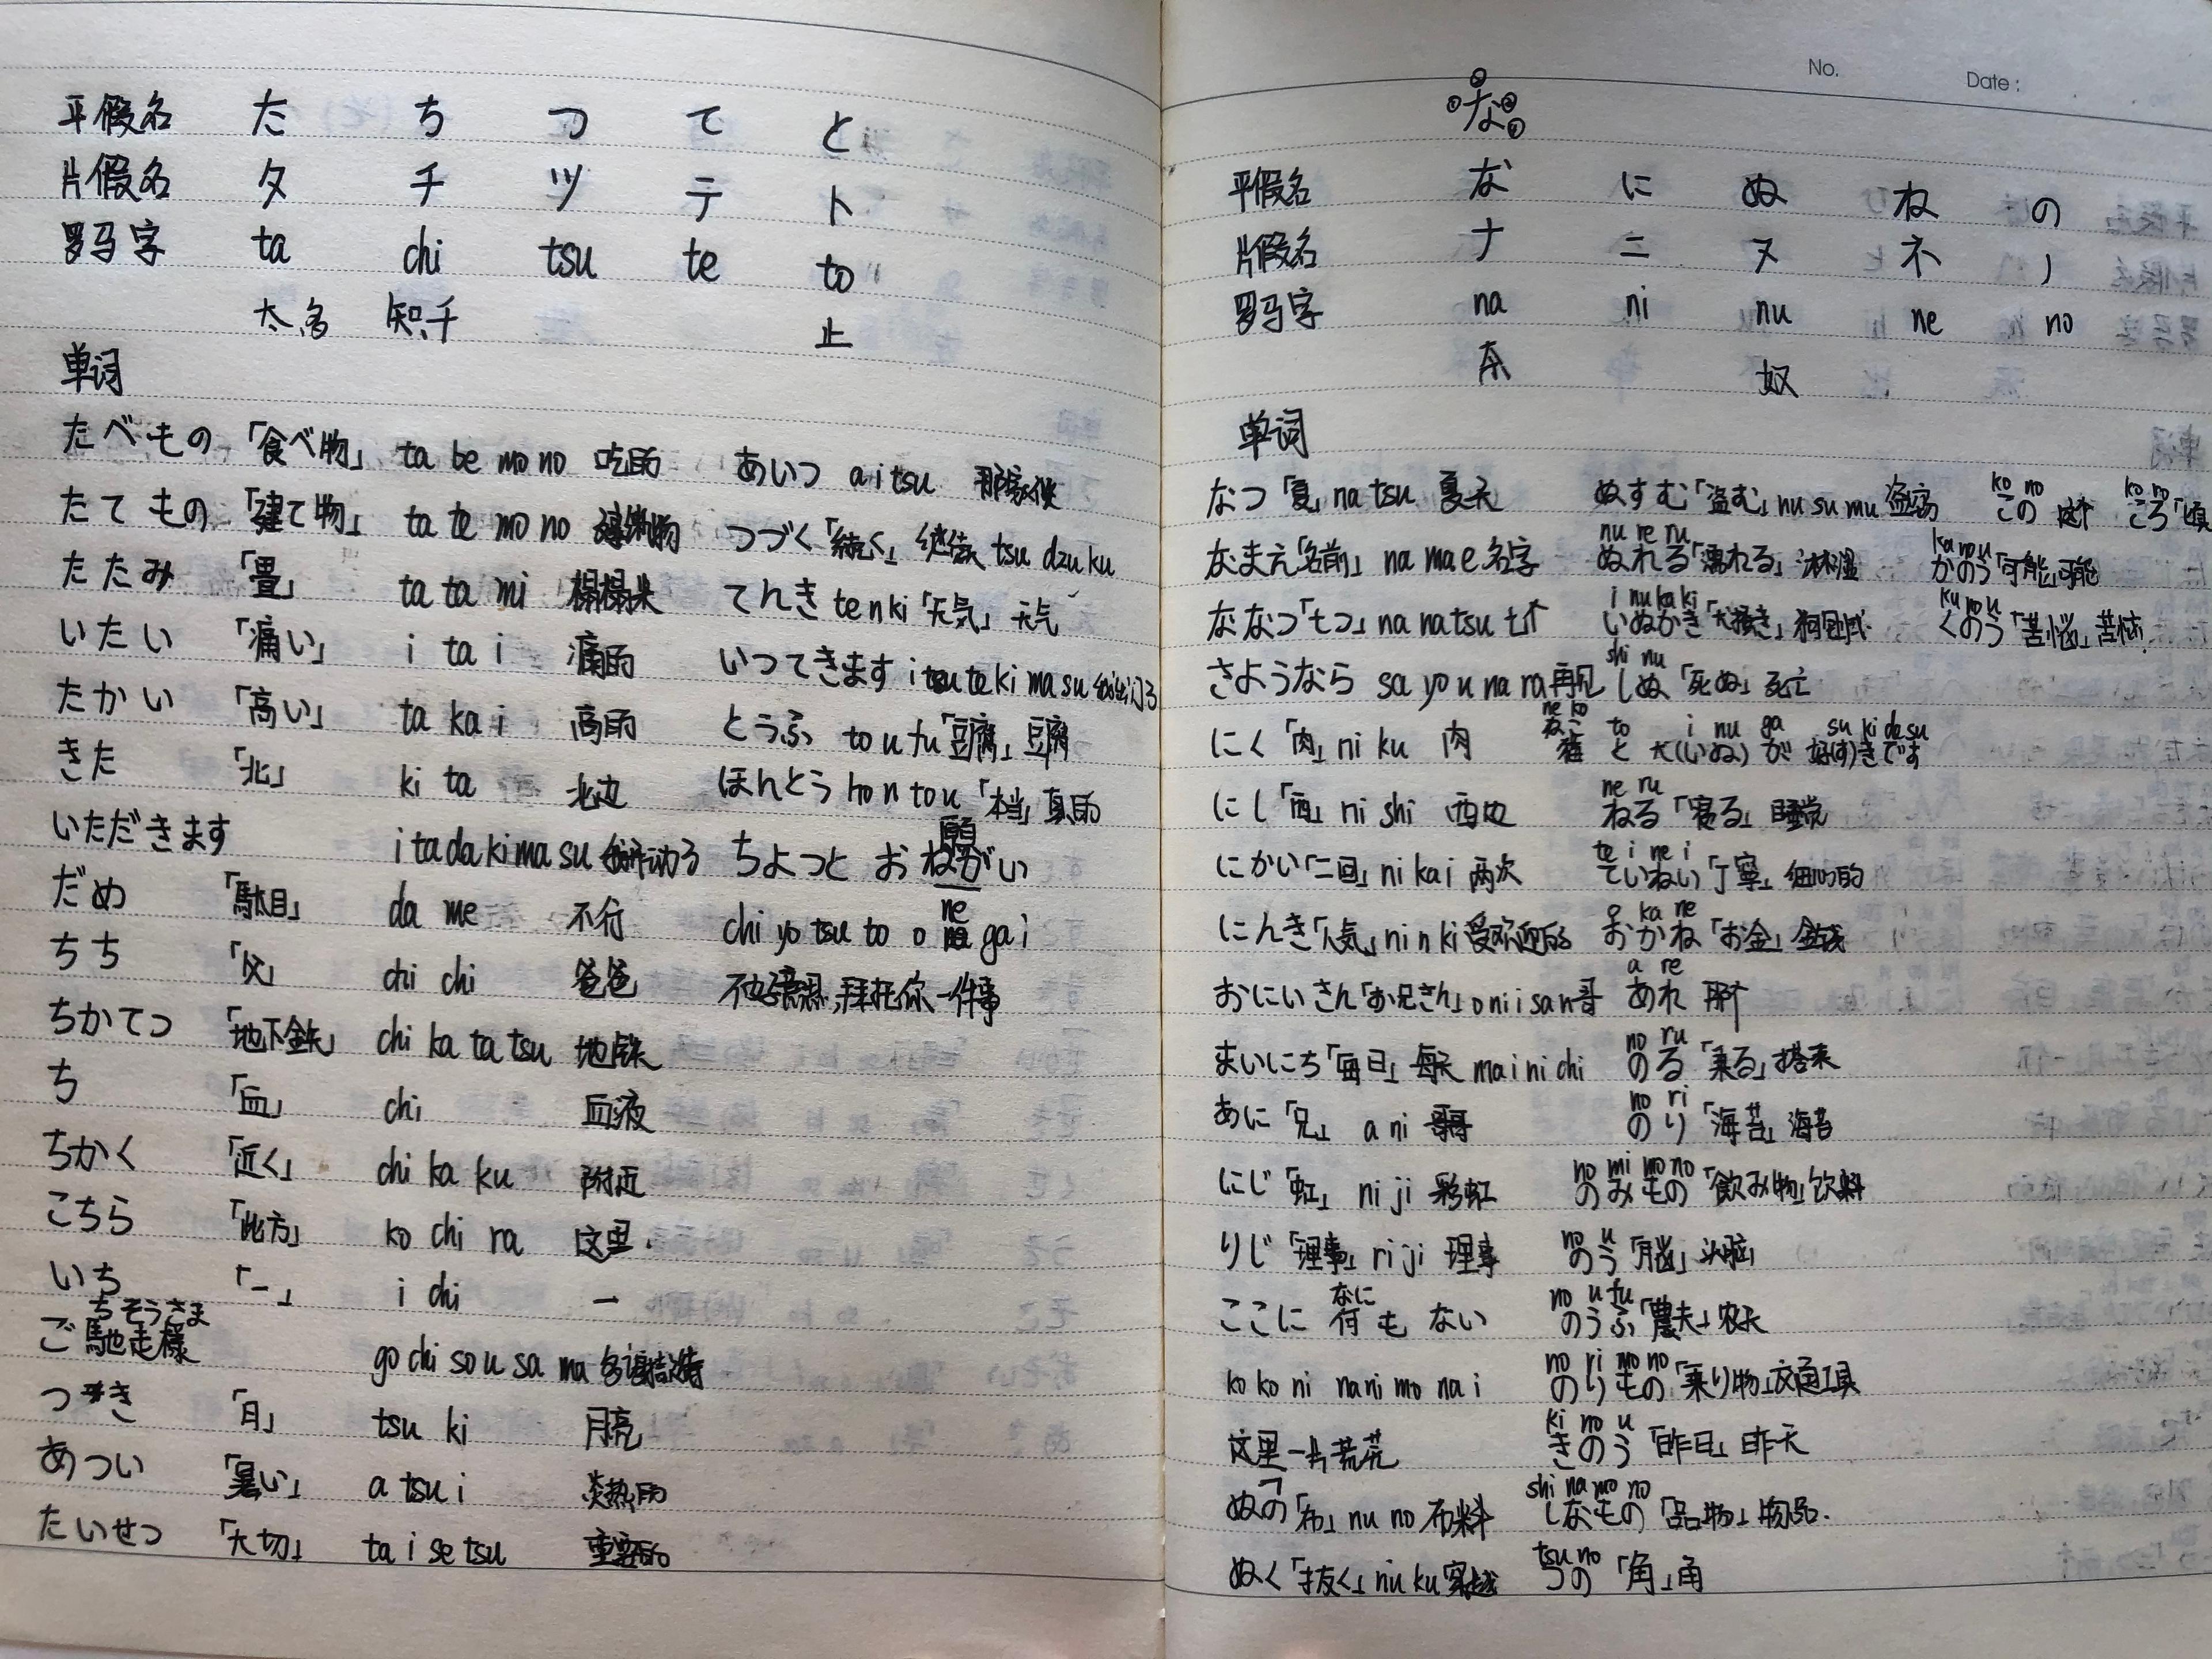 平假名 た ち つ て と
片假名 タ チ ツ テ ト
罗马字 ta chi tsu te to
太,多 知,千 止
单词
たべもの 「食べ物」 ta be mo no 吃的
たてもの 「建て物」 ta te mo no 建筑物
たたみ 「畳」 ta ta mi 榻榻米
いたい 「痛い」 i ta i 痛的
たかい 「高い」 ta ka i 高的
きた 「北」 ki ta 北边
いただきます i ta da ki ma su 我开动了
だめ 「駄目」 da me 不行
ちち 「父」 chi chi 爸爸
ちかてつ 「地下鉄」 chi ka ta tsu 地铁
ち 「血」 chi 血液
ちかく 「近く」 chi ka ku 附近
こちら 「此方」 ko chi ra 这里.
いち 「一」 i chi 一
ちそうさま
ご馳走様 go chi so u sa ma 多谢款待
つき 「月」 tsu ki 月亮
あつい 「暑い」 a tsu i 炎热的
たいせつ 「大切」 ta i se tsu 重要的
あいつ a i tsu 那家伙
つづく「続く」 继续 tsu dzu ku
てんき te n ki 「天気」 天气
いつてきます i tsu te ki ma su 我出门了
とうふ to u fu「豆腐」豆腐
ほんとう ho n to u 「本当」真的
願
ちよつと おねがい
ne
chi yo tsu to o gai
不好意思,拜托你一件事
No. Date:
な
平假名 な に ぬ ね の
片假名 ナ ニ ヌ ネ ノ
罗马字 na ni nu ne no
奈 奴
单词
なつ「夏」na tsu 夏天
なまえ「名前」 na ma e 名字
ななつ「七つ」na na tsu 七个
さようなら sa yo u na ra 再见
にく「肉」ni ku 肉
にし「西」ni shi 西边
にかい「二回」ni ka i 两次
にんき「人気」ni n ki 受欢迎的
おにいさん「お兄さん」o ni i sa n 哥
まいにち「毎日」每天 ma i ni chi
あに「兄」 a ni 哥哥
にじ「虹」 ni ji 彩虹
りじ「理事」ri ji 理事
なに
ここに 何も ない
ko ko ni na ni mo na i
这里一片荒芜
ぬの「布」nu no 布料
ぬく「抜く」nu ku 穿越
ぬすむ「盗む」nu su mu 盗窃
nu re ru
ぬれる「濡れる」淋湿
i nu ka ki
いぬかき「犬掻き」狗刨式
shi nu
しぬ「死ぬ」死亡
ne ko to i nu ga su ki de su
ねこ
猫 と 犬(いぬ) が 好(す)きです
ne ru
ねる「寝る」睡觉
te i ne i
ていねい「丁寧」细心的
o ka ne
おかね「お金」金钱
a re
あれ 那个
no ru
のる「乗る」搭乘
no ri
のり「海苔」海苔
no mi mo no
のみもの「飲み物」饮料
no u
のう「脳」头脑
no u fu
のうふ「農夫」农夫
no ri mo no
のりもの「乗り物」交通工具
ki no u
きのう「昨日」昨天
shi na mo no
しなもの「品物」物品.
tsu no
つの「角」角
ko no
この 这个
ko no
ころ「頃
ka no u
かのう「可能」可能
ku no u
くのう「苦悩」苦恼.